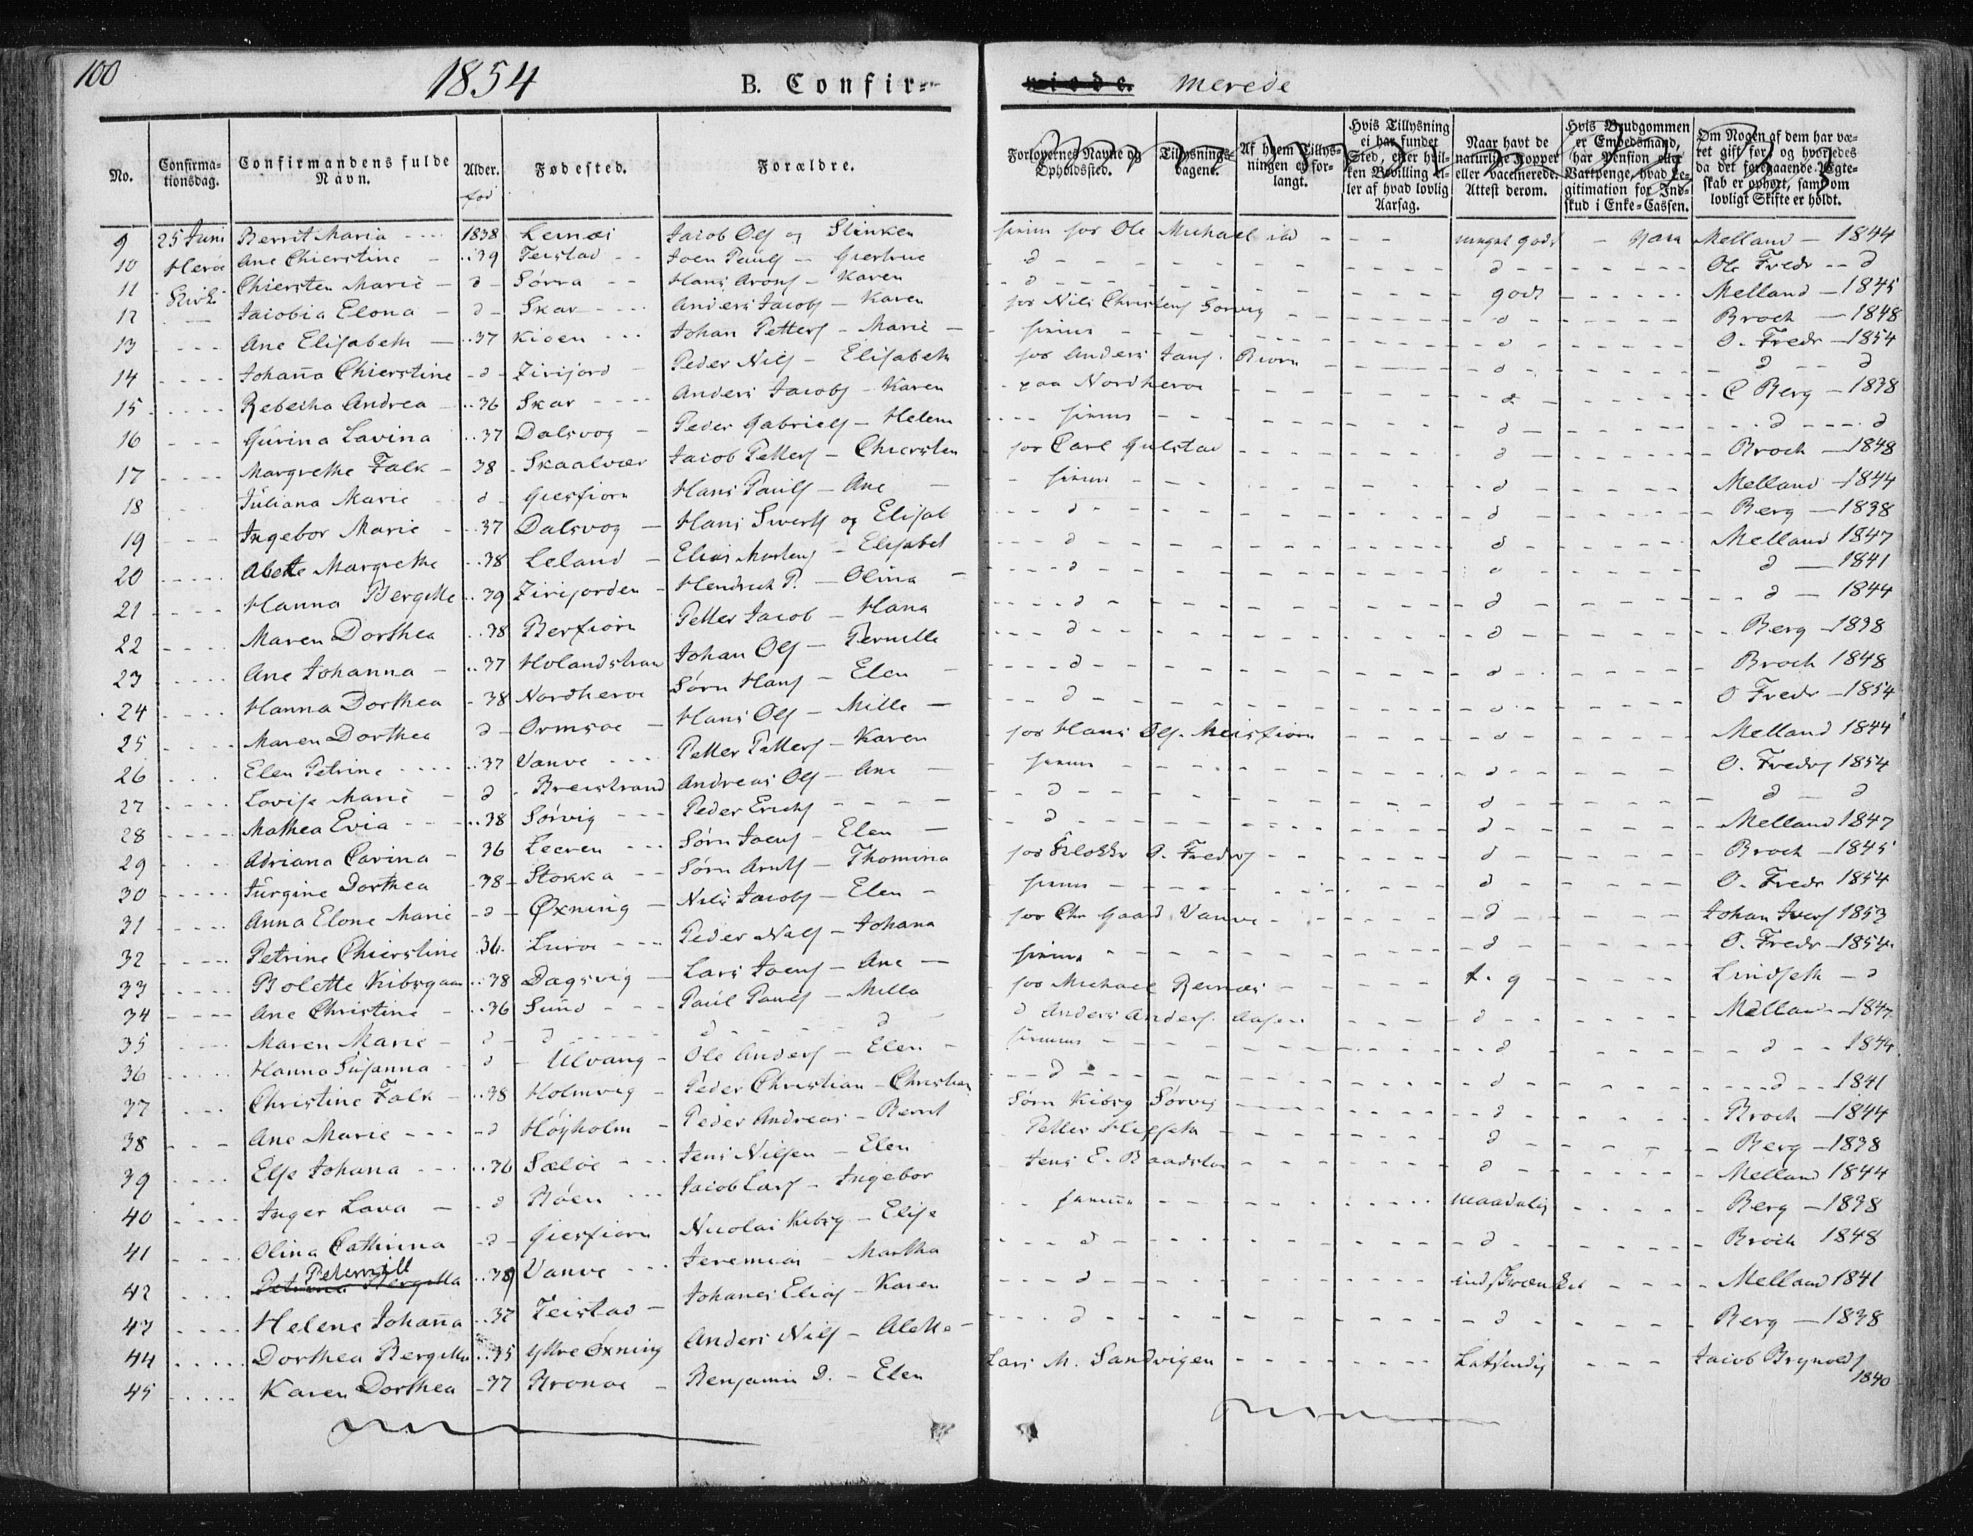 100 1854 B. Confir- merede
No. Confirmationsdag. Confirmandens fulde Navn. Alder. Fødested. Forældre. Forlovernes Navne og Opholdssted. Tillysningsdagene. Af hvem Tillysningen er forlangt. Hvis Tillysning ei har fundet Sted, efter hvilken Bevilling eller af hvad lovlig Aarsag. Naar havt de naturlige Kopper eller vaccinerede. Attest derom. Hvis Brudgommen er Embedsmand, har Pension eller Vartpenge, hvad Legitimation for Indskud i Enke-Cassen. Om Nogen af dem har været gift før, og hvorledes da det foregaaende Egteskab er ophørt, samt om lovligt Skifte er holdt.
født
9 25 Juni Berrit Maria 1838 Leinæs Jacob Ols og Slinken hos Ole Michael meget godt Melland 1844
10 Herøe Ane Chierstine 39 Teistad Joen Pauls Giertrue d d Ole Fredr d
11 Kirke Chiersten Marie d Sørra Hans Arons Karen d godt Melland 1845
12 Jacobia Elona d Skar Anders Jacobs Karen hos Nils Christens Sørvig d Broch 1848
13 Ane Elisabeth 37 Kioen Johan Petters Marie d O. Fredr 1854
14 Johanna Chierstine d Zirifjord Peder Nils Elisabeth hos Anders Jans. Biørn d d d
15 Rebecka Andrea 36 Skar Anders Jacobs Karen paa Nordherøe d C Berg 1838
16 Gurina Lavina 37 Dalsvog Peder Gabriels Helena d d d
17 Margrethe Falk 38 Skaalvær Jacob Petters Chiersten hos Carl Gulstad d Broch 1848
18 Juliana Marie d Giesfiorn Hans Pauls Ane d Melland 1844
19 Ingebor Marie 37 Dalsvog Hans Siverts og Elisab d d Berg 1838
20 Abette Margrethe 38 Leland Elias Mortens Elisabet d d Melland 1847
21 Hanna Bergitte 39 Zirifjorden Hendrick P. Olina d d d 1841
22 Maren Dorthea 38 Berfiorn Petter Jacob Hana d d d 1844
23 Ane Johanna 37 Holandstran Johan Ols Pernille d d Berg 1838
24 Hanna Dorthea 38 Nordherøe Sørn Hans Elen d d Broch 1848
25 Maren Dorthea d Ormsøe Hans Ols Mille d d O Fredr 1854
26 Elen Petrine 37 Vanve Petter Petters Karen hos Hans Ols. Meisfiorn d Melland 1844
27 Lovise Marie d Breistrand Andreas Ols Ane d O. Fredr 1854
28 Mathea Evia 38 Sørvig Peder Erichs d d d d
29 Adriana Carina 36 Leeren Sørn Joens Elen d d Melland 1847
30 Jürgine Dorthea 38 Stokka Sørn Arnts Thomina hos Klokker O. Fredrs d Broch 1845
31 Anna Elone Marie d Øxning Nils Jacobs Elen d O. Fredr 1854
32 Petrine Chierstine 36 Lurøe Peder Nils Johana hos Chr Gaard Vanve d Johan Ivers 1853
33 Bolette Kibsgaar 38 Dagsvig Lars Joens Ane d O. Fredr 1854
34 Ane Christine 36 Sund Paul Pauls Milla hos Michael Reinæs t. g Lindseth d
35 Maren Marie d d d d d Anders Anders. Aasen d Melland 1847
36 Hanna Susanna d Ulvang Ole Anders Elen d d 1844
37 Christine Falk 38 Holmvig Peder Christian Christian d d d 1841
38 Ane Marie d Høyholm Peder Andreas Berrit Sørn Kibsg Sørvig d Broch 1844
39 Else Johana 36 Sæløe Jens Nilsen Elen Petter d Berg 1838
40 Inger Lava d Bøen Jacob Lars Ingebor Jens E. Baadstøe d Melland 1844
41 Olina Cathrina d Giesfiorn Nicolai Kibsg Elise maadelig Berg 1838
42 Petternill 38 Vanve Jeremias Martha d d Broch 1848
43 Helene Johanna 37 Teistad Johanes Elias Karen d indskrænket Melland 1841
44 Dorthea Bergitta 35 Yttre Øxning Anders Nils Alette d d Berg 1838
45 Karen Dorthea 37 Bronøe Benjamin D. Elen Lars M. Sandvigen Jacob Brynolds 1840